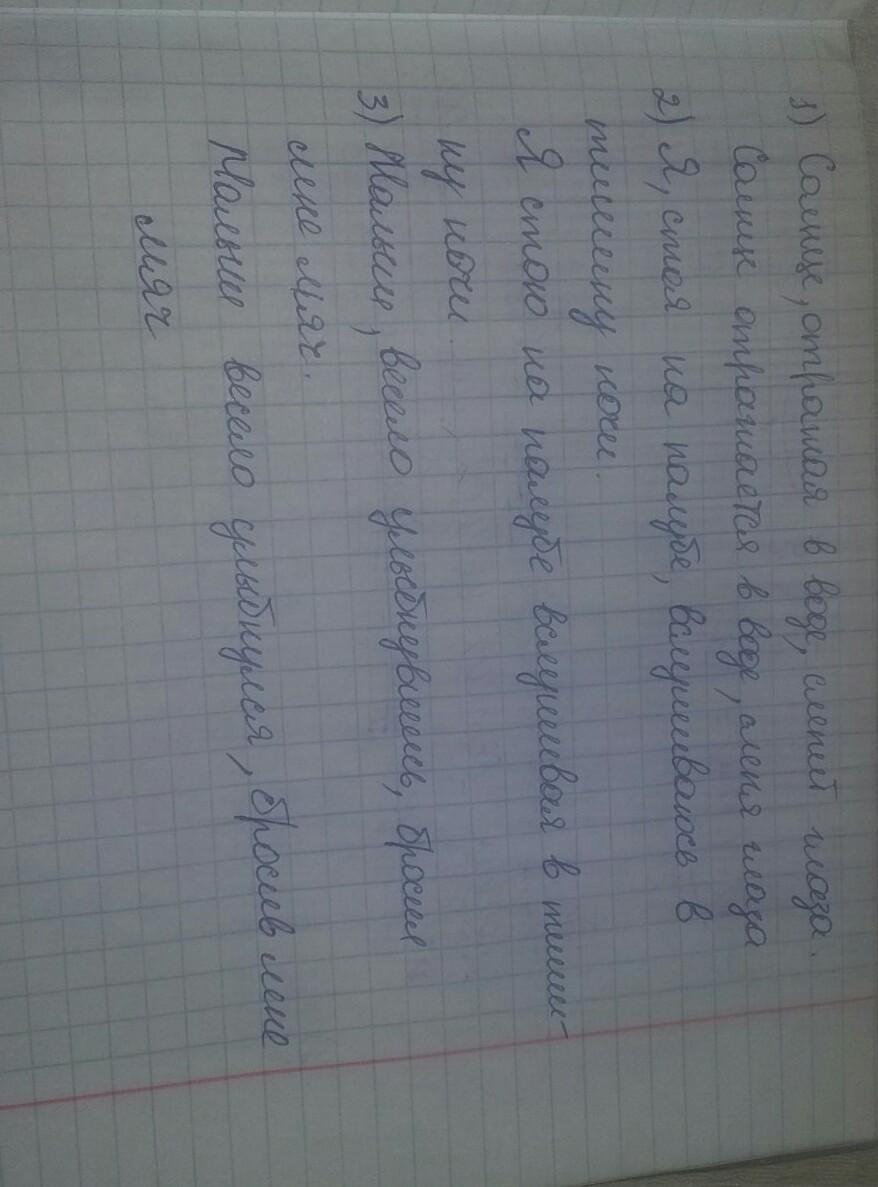 1) Солнце, отражая в воде, слепит глаза.
Солнце отражается в воде, слепя глаза
2) Я, стоя на палубе, вслушиваюсь в
тишину ночи.
Я стою на палубе вслушивая в тиши-
ну ночи.
3) Малыш, весело улыбнувшись, бросил
мне мяч.
Малыш весело улыбнулся, бросив мне
мяч